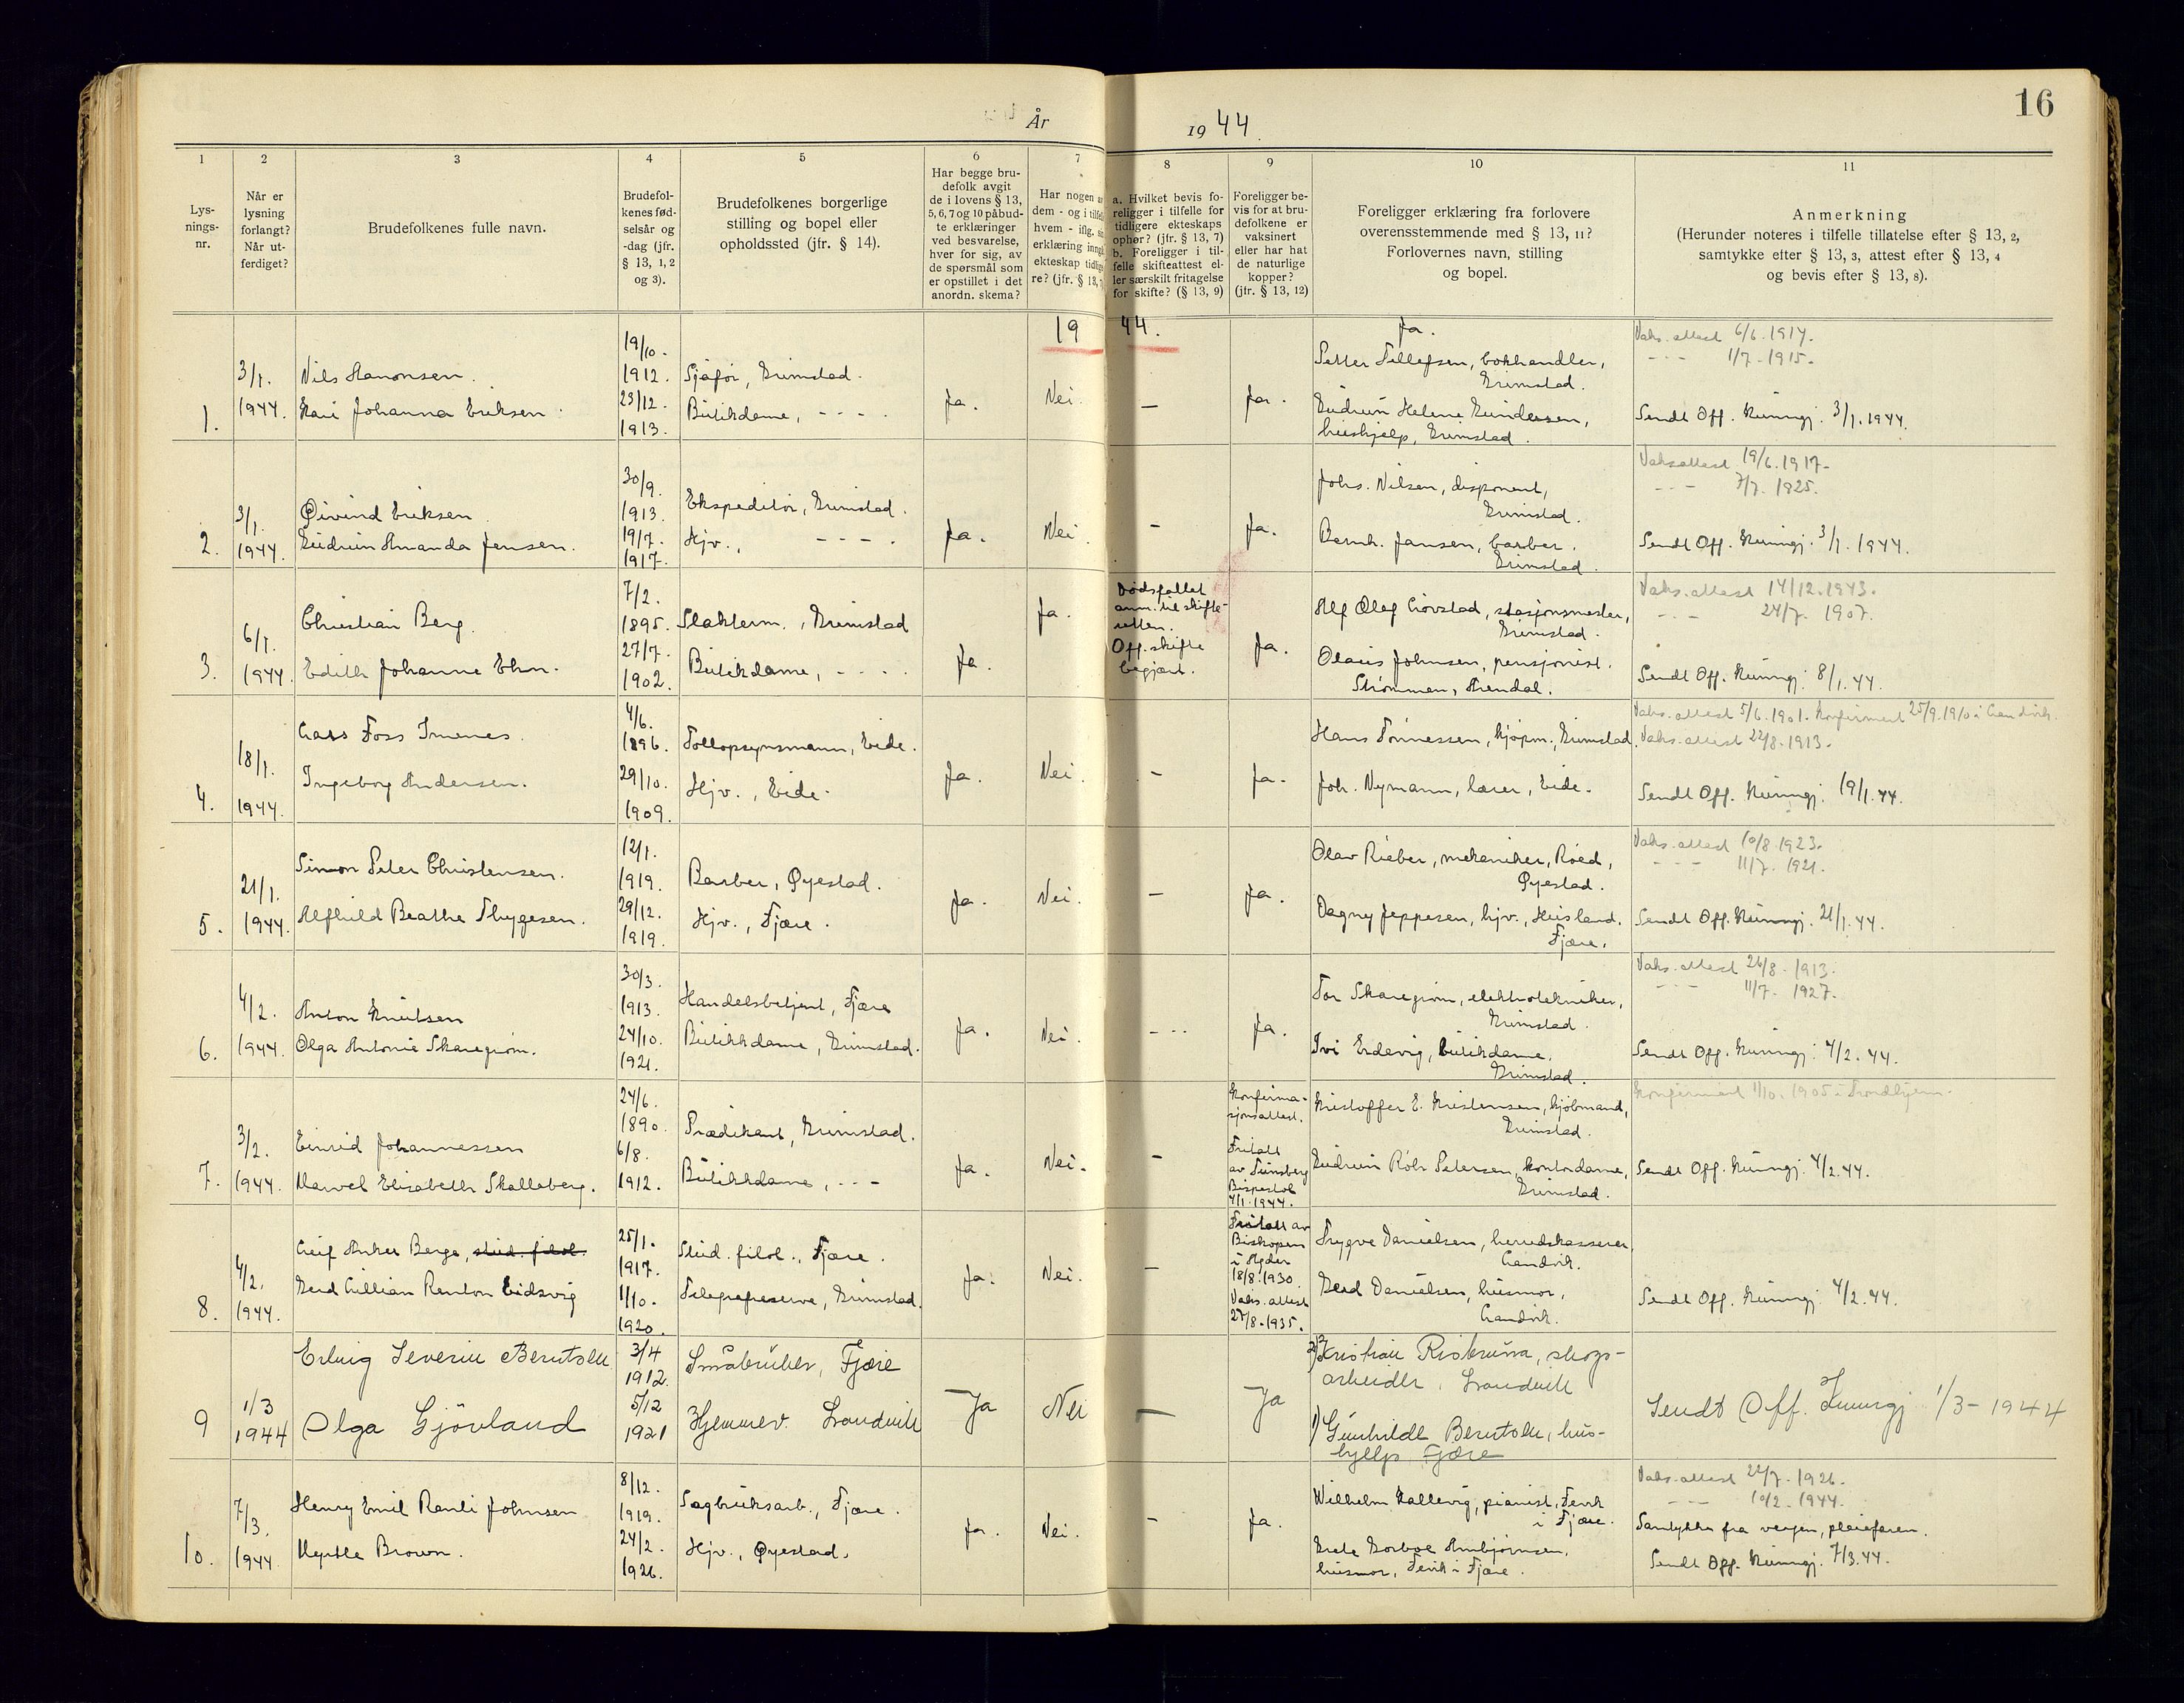 16
År 1944.
1
2
3
4
5
6
7
8
9
10
11
Lys-
nings-
nr.
Når er
lysning
forlangt?
Når ut-
ferdiget?
Brudefolkenes fulle navn.
Brudefol-
kenes fød-
selsår og
-dag (jfr.
§ 13, 1, 2
og 3).
Brudefolkenes borgerlige
stilling og bopel eller
opholdssted (jfr. § 14).
Har begge bru-
defolk avgit
de i lovens § 13,
5, 6, 7 og 10 påbud-
te erklæringer
ved besvarelse,
hver for sig, av
de spørsmål som
er opstillet i det
anordn. skema?
Har nogen
dem - og i
hvem - iflg.
erklæring
ekteskap
re? (jfr. § 13,
a. Hvilket bevis fo-
religger i tilfelle for
tidligere ekteskaps
ophør? (jfr. § 13, 7)
b. Foreligger i til-
felle skifteattest el-
ler særskilt fritagelse
for skifte? (§ 13, 9)
Foreligger be-
vis for at bru-
defolkene er
vaksinert
eller har hat
de naturlige
kopper?
(jfr. § 13, 12)
Foreligger erklæring fra forlovere
overensstemmende med § 13, 11?
Forlovernes navn, stilling
og bopel.
Anmerkning
(Herunder noteres i tilfelle tillatelse efter § 13, 2,
samtykke efter § 13, 3, attest efter § 13, 4
og bevis efter § 13, 8).
1944.
1.
3/1.
1944.
Nils Aanonsen.
Kari Johanna Eriksen.
19/10.
1912.
23/12.
1913.
Sjåfør, Grimstad.
Butikdame, - - - .
Ja.
Nei.
-
Ja.
Ja.
Petter Tellefsen, bokhandler,
Grimstad.
Gudrun Helene Gundersen,
hushjelp, Grimstad.
Vaks.attest 6/6.1917.
- - - 1/7.1915.
Sendt Off. Kunngj. 3/1.1944.
2.
3/1.
1944.
Øivind Eriksen
Gudrun Amanda Jensen.
30/9.
1913.
19/7.
1917.
Ekspeditør, Grimstad.
Hjv., - - - .
Ja.
Nei.
-
Ja.
Johs. Nilsen, disponent,
Grimstad.
Bernh. Jansen, barber.
Grimstad.
Vaksattest 19/6.1917.
- - - 7/7. 1925.
Sendt Off. Kunngj. 3/1. 1944.
3.
6/1.
1944.
Christian Berg.
Edith Johanne Ehn.
7/2.
1895.
27/7.
1902.
Slakterm., Grimstad
Butikdame, - - - .
Ja.
Ja.
Dødsfallet
anm. til skifte-
retten.
Off. skifte
begjært.
Ja.
Alf Olaf Løvstad, stasjonsmester,
Grimstad.
Olaus Johnsen, pensjonist.
Strømmen, Arendal.
Vaks.attest 14/12.1943.
- - - 24/7. 1907.
Sendt Off. Kunngj. 8/1.44.
4.
18/1.
1944.
Lars Foss Imenes.
Ingeborg Andersen.
4/6.
1896.
29/10.
1909.
Tollopsynsmann, Eide.
Hjv., Eide.
Ja.
Nei.
-
Ja.
Hans Tønnessen, kjøpm., Grimstad.
Joh. Nymann, lærer, Eide.
Vaks.attest 5/6.1901. Konfirmert 25/9.1910 i Landvik.
Vaks.attest 22/8.1913.
Sendt Off. Kunngj. 19/1.44.
5.
21/1.
1944.
Simon Peter Christensen.
Alfhild Beathe Thygesen.
12/1.
1919.
29/12.
1919.
Barber, Øyestad.
Hjv., Fjære.
Ja.
Nei.
-
Ja.
Olav Rieber, mekaniker, Røed,
Øyestad.
Dagny Jeppesen, hjv., Heisland.
Fjære.
Vaks.attest 10/8.1923.
- - - 11/7. 1921.
Sendt Off. Kunngj. 21/1.44.
6.
4/2.
1944.
Anton Knutsen
Olga Antonie Skaregrøm.
30/3.
1913.
24/10.
1921.
Handelsbetjent, Fjære
Butikkdame, Grimstad.
Ja.
Nei.
- - -
Ja.
Tor Skaregrøm, elektrotekniker,
Grimstad.
Ivi Erdevig, butikdame.
Grimstad.
Vaks.attest 26/8.1913.
- - - 11/7. 1927.
Sendt Off. Kunngj. 4/2.44.
7.
3/2.
1944.
Einrid Johannessen
Marvel Elisabeth Skalleberg.
24/6.
1890.
6/8.
1912.
Prædikant, Grimstad.
Butikkdame, - - -
Ja.
Nei.
-
Konfirma-
sjonsattest.
Fritatt
av Tunsberg
Bispestol
4/1.1944.
Kristoffer E. Kristensen, kjøbmand,
Grimstad.
Gudrun Röhr Petersen, kontordame,
Grimstad.
Konfirmert 1/10. 1905 i Trondhjem.
Sendt Off. Kunngj. 4/2.44.
8.
4/2.
1944.
Leif Anker Berge, stud. filol.
Gerd Lillian Renton Eidsvig
25/1.
1917.
1/10.
1920.
Stud. filol., Fjære.
Telegrafreserve, Grimstad.
Ja.
Nei.
-
Fritatt av
Biskopen
i Agder
18/8.1930.
Vaks.attest
27/8.1935.
Trygve Danielsen, herredskasserer,
Landvik.
Gerd Danielsen, husmor,
Landvik.
Sendt Off. Kunngj. 4/2.44.
9
1/3
1944
Erling Severin Berntsen
Olga Gjövland
3/4
1912.
5/12
1921
Småbruker, Fjære
Hjemmev. Landvik
Ja
Nei
-
Ja
2) Kristian Risbruna, skogs-
arbeider, Landvik
1) Gunhilde Berntsen, hus-
hjelp Fjære
Sendt Off. Kunngj 1/3-1944
10.
7/3.
1944.
Henry Emil Rauli Johnsen
Myrtle Brown.
8/12.
1919.
24/2.
1926.
Sagbruksarb., Fjære.
Hjv., Øyestad.
Ja.
Nei.
-
Ja.
Wilhelm Kallevig, pianist, Fevik
i Fjære.
Grete Borboe Arnbjørnsen,
husmor, Fevik i Fjære.
Vaks.attest 22/7.1926.
- - - 10/2. 1944.
Samtykke fra vergen, pleiefaren.
Sendt Off. Kunngj. 7/3.44.